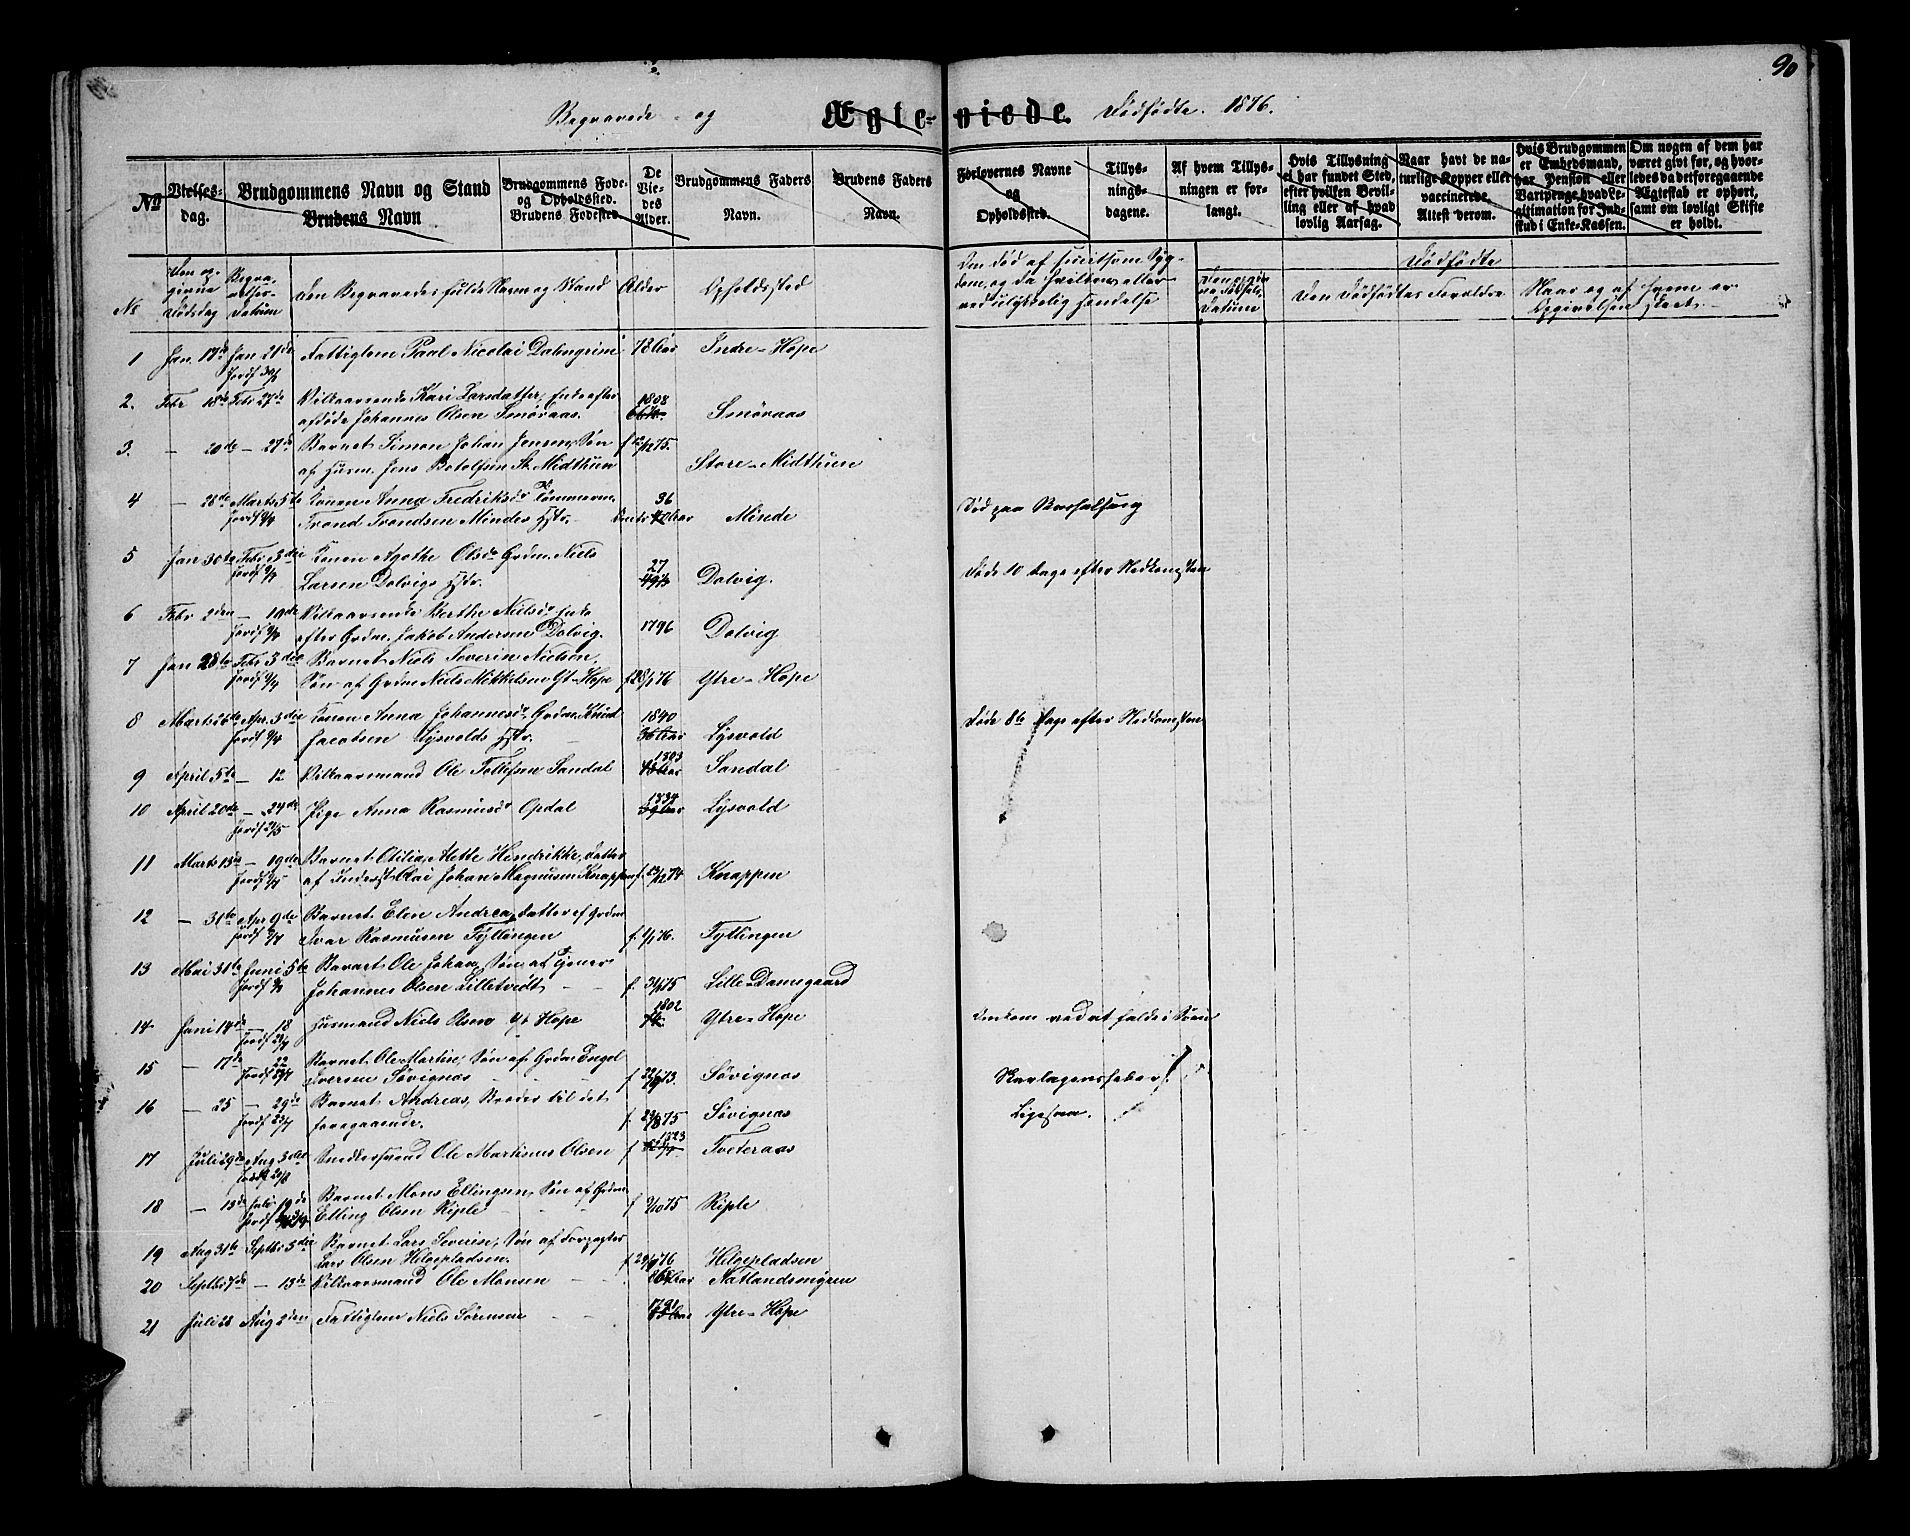 90
Begravede og Ægteviede. Dødfødte. 1876.
No
Vielses-
dag.
Brudgommens Navn og Stand
Brudens Navn
Brudgommens Føde-
og Opholdssted.
Brudens Fødested.
De
Vie-
des
Alder.
Brudgommens Faders
Navn.
Brudens Faders
Navn.
Forlovernes Navne
og
Opholdssted.
Tillys-
nings-
dagene.
Af hvem Tillys-
ningen er for-
langt.
Hvis Tillysning
ei har fundet Sted,
efter hvilken Bevil-
ling eller af hvad
lovlig Aarsag.
Naar havt de na-
turlige Kopper eller
vaccinerede.
Attest derom.
Hvis Brudgommen
er Embedsmand,
har Pension eller
Vartpenge, hvad Le-
gitimation for Ind-
skud i Enke-Kassen.
Om nogen af dem har
været givt før, og hvor-
ledes da det foregaaende
Ægteskab er ophørt,
samt om lovligt Skifte
er holdt.
No
Den op-
givne
Dødsdag
Begra-
velses-
Datum
Den Begravedes fulde Navn og Stand
Alder
Opholdssted
Den død af smitsom Syg-
dom, og da hvilken, eller
ved ulykkelig hændelse
Datum
Dødfødte
Den Dødfødtes Forældre
Naar og af hvem er
Opgivelsen skeet.
1 Jan. 17de Jan 21de Fattiglem Paal Nicolai Dahngrim 78 Aar Indre-Hope
2. Febr 18de Febr 27de Vilkaarsenke Kari Larsdatter, Enke efter 1808
afdøde Johannes Olsen Smøraas. Smøraas
3. — 20de — 27de Barnet Simon Johan Jensen, Søn f 12/12 75.
af Husm. Jens Botolfsen St. Midthun Store-Midthun
4 — 28de Marts 5te Konen Anna Fredriksdr Tømmerm. 36
Trond Trondsen Mindes Hstr. 40 Aar Minde Død paa Barselseng
5 Jan 30te Febr 3die Konen Agathe Olsdr Grdm. Niels 27
Larsen Dolvigs Hstr. Dolvig. Døde 10 Dage efter Nedkomsten
6 Febr 2den — 19de Vilkaarsenke Berthe Nielsdr Enke
efter Grdm. Jakob Andersen Dolvig. 1796 Dolvig
7 Jan 28te Febr 3die Barnet Niels Severin Nielsen,
Søn af Grdm Niels Mikkelsen Yt-Hope f 28/1 76 Ytre-Hope
8 Marts 26te Apr. 3die Konen Anna Johannesdr Grdm. Knud 1840
Jordf 9/4 Jacobsen Lysvolds Hstr. 36 Aar Lysvold Døde 8te Dage efter Nedkomsten
9 April 5te — 12 Vilkaarsmand Ole Tollefsen Sandal 1803 Sandal
10 April 20de — 24de Pige Anna Rasmusdr Opdal 1834 Lysvold
11 Marts 13de — 19de Barnet Otilia Mette Hendrikke, Datter
af Inderst Olai Johan Magnusen Knappen f. 29/12 74 Knappen
12 — 31te Apr 9de Barnet Elen Andrea, Datter af Grdm
Ivar Rasmusen Tyllingen f. 1/1 76. Tyllingen
13 Mai 31te Juni 5te Barnet Ole Johan, Søn af Tjener
Johannes Olsen Lilletvedt f. 31/1 75 Lille-Damsgaard
14 Juni 14de — 18 Husmand Niels Olsen Yt Hope 1802 Ytre-Hope Omkom ved at falde i Søen
15 — 17de 22 Barnet Ole Martin, Søn af Grdm Engel
Iversen Søvignæs f 22/9 73. Søvignæs Skarlagensfeber
16 — 25 — 29de Barnet Andreas, Broder til det
Jordf 23/7 foregaaende. f. 29/8 75 Søvignæs Ligesaa.
17 Juli 29de Aug 3die Snedkersvend Ole Martinus Olsen f 1823 Tveteraas
18 — 13de Juli 19de Barnet Mons Ellingsen, Søn af Grdm.
Elling Olsen Riple f 9/10 75 Riple
19 Aug 31te Septbr 3die Barnet Lars Severin, Søn af Forpagter
Lars Olsen Helgepladsen. f. 29/1 76 Helgepladsen
20 Septbr 7de — 13de Vilkaarsmand Ole Monsen Aar Natlandsmyren
21 Juli 28 Aug 2den Fattiglem Niels Sørensen 1791 Ytre-Hope